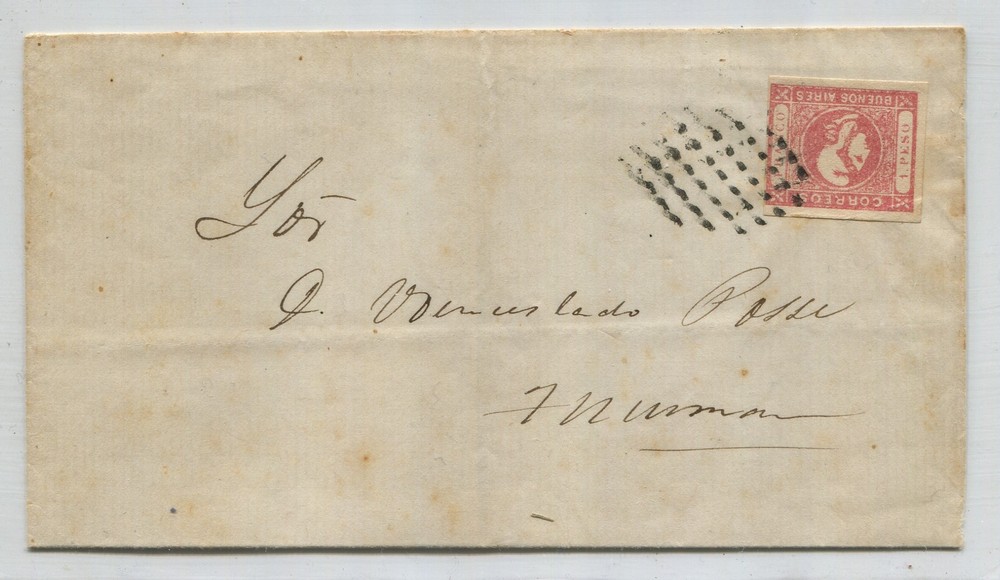 BUENOS AIRES
FRANCO
1. PESO
CORREOS
Sor̄
D. Wenceslado Posse
Tucuman